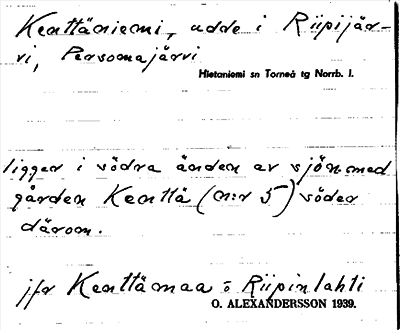 Kenttäniemi, udde i Riipijär-
vi, Persomajärvi
Hietaniemi sn Torneå tg Norrb. l.
ligger i södra änden av sjön med
gården Kenttä (n:r 5) söder
därom.
jfr Kenttämaa o Riipinlahti
O. ALEXANDERSSON 1939.